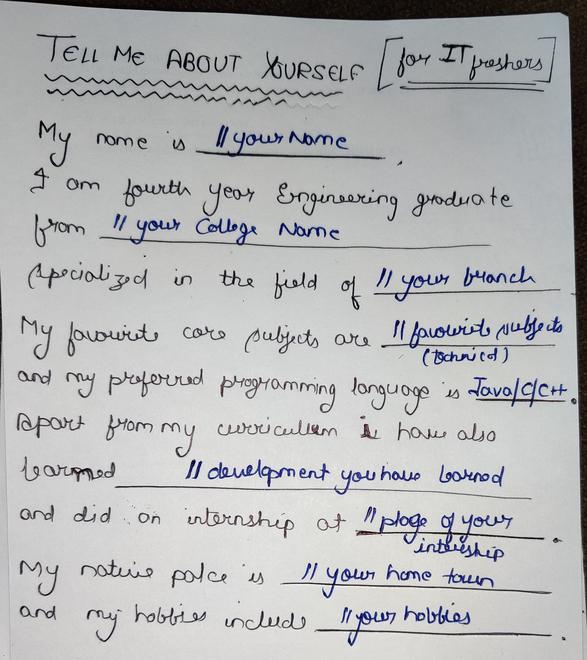 TELL ME ABOUT YOURSELF [for IT freshers]
My name is // your Name .
I am fourth year Engineering graduate
from // your College Name
specialized in the field of // your branch
My favourite core subjects are // favourite subjects
(technical)
and my preferred programming language is Java/C/C++.
Apart from my curriculum i have also
learned // development you have learned
and did an internship at // place of your
intership .
My native palce is // your home town
and my hobbies include // your hobbies .